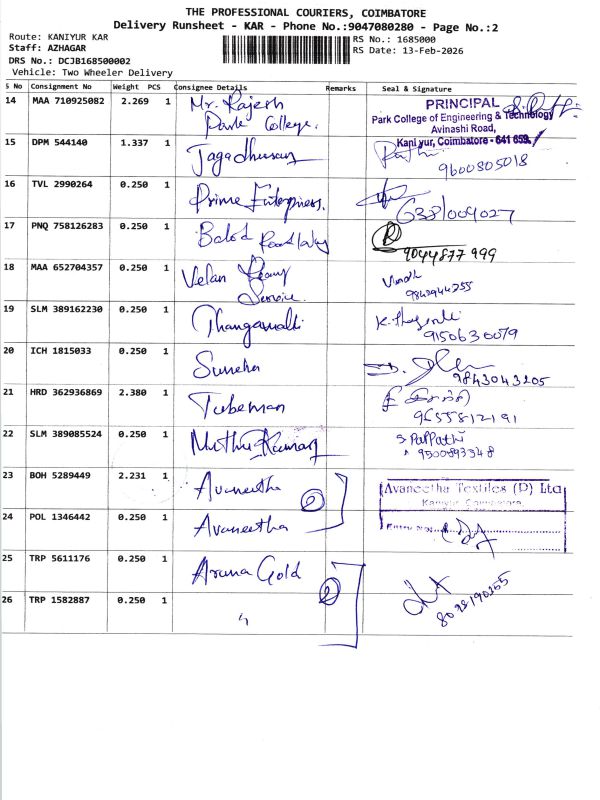 THE PROFESSIONAL COURIERS, COIMBATORE
Delivery Runsheet - KAR - Phone No.:9047080280 - Page No.:2
Route: KANIYUR KAR
RS No.: 1685000
Staff: AZHAGAR
RS Date: 13-Feb-2026
DRS No.: DCJB168500002
Vehicle: Two Wheeler Delivery
S No Consignment No Weight PCS Consignee Details Remarks Seal & Signature
14 MAA 710925082 2.269 1 Mr. Rajesh
Park College.
PRINCIPAL
Park College of Engineering & Technology
Avinashi Road,
Kaniyur, Coimbatore - 641 659.
15 DPM 544140 1.337 1
9600805018
16 TVL 2990264 0.250 1 Prime Enterprises.
6381004027
17 PNQ 758126283 0.250 1
9044877999
18 MAA 652704357 0.250 1 Velan
Service.
19 SLM 389162230 0.250 1
K.
9150630079
20 ICH 1815033 0.250 1
9843043205
21 HRD 362936869 2.380 1 Tubeman
9655812191
22 SLM 389085524 0.250 1 Muthu Kumar
S Pappathi
9500893348
23 BOH 5289449 2.231 1 Avaneetha
2
Avaneetha Textiles (P) Ltd
Kaniyur, Coimbatore
24 POL 1346442 0.250 1 Avaneetha
25 TRP 5611176 0.250 1 Aruna Gold
2
26 TRP 1582887 0.250 1 "